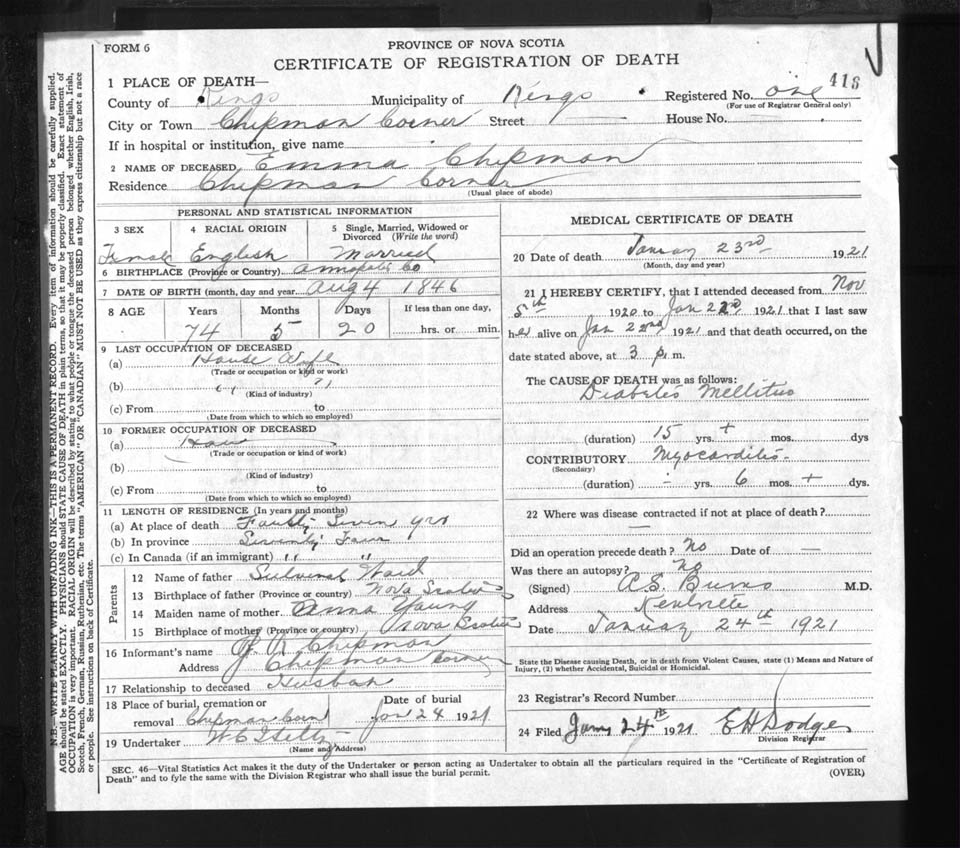 FORM 6
PROVINCE OF NOVA SCOTIA
CERTIFICATE OF REGISTRATION OF DEATH
1 PLACE OF DEATH—
418
County of Kings Municipality of Kings Registered No. one
(For use of Registrar General only)
City or Town Chipman Corner Street — House No. —
If in hospital or institution, give name
2 NAME OF DECEASED Emma Chipman
Residence Chipman Corner
(Usual place of abode)
PERSONAL AND STATISTICAL INFORMATION
3 SEX 4 RACIAL ORIGIN 5 Single, Married, Widowed or Divorced (Write the word)
Female English Married
6 BIRTHPLACE (Province or Country) Annapolis Co
7 DATE OF BIRTH (month, day and year Aug 4 1846
8 AGE Years Months Days If less than one day,
74 5 20 hrs. or min.
9 LAST OCCUPATION OF DECEASED
(a) House Wife
(Trade or occupation or kind or work)
(b) " "
(Kind of industry)
(c) From to
(Date from which to which so employed)
10 FORMER OCCUPATION OF DECEASED
(a)
(Trade or occupation or kind of work)
(b)
(Kind of industry)
(c) From to
(Date from which to which so employed)
11 LENGTH OF RESIDENCE (In years and months)
(a) At place of death Fourty Seven yrs
(b) In province Seventy Four
(c) In Canada (if an immigrant) " "
Parents
12 Name of father Ward
13 Birthplace of father (Province or country) Nova Scotia
14 Maiden name of mother Anna Young
15 Birthplace of mother (Province or country) Nova Scotia
16 Informant's name Chipman
Address Chipman Corner
17 Relationship to deceased Husban
18 Place of burial, cremation or Date of burial
removal Chipman Corn Jan 24 1921
19 Undertaker W.C.
(Name and Address)
MEDICAL CERTIFICATE OF DEATH
20 Date of death January 23rd 1921
(Month, day and year)
21 I HEREBY CERTIFY, that I attended deceased from Nov
5th 1920 to Jan 22nd 1921 that I last saw
her alive on Jan 22nd 1921 and that death occurred, on the
date stated above, at 3 p. m.
The CAUSE OF DEATH was as follows:
Diabetis Mellitus
(duration) 15 yrs. + mos. dys
CONTRIBUTORY Myocarditis-
(Secondary)
(duration) - yrs. 6 mos. + dys.
22 Where was disease contracted if not at place of death?
—
Did an operation precede death? No Date of —
Was there an autopsy? No
(Signed) A.S. Burns M.D.
Address Kentville
Date January 24th 1921
State the Disease causing Death, or in death from Violent Causes, state (1) Means and Nature of
Injury, (2) whether Accidental, Suicidal or Homicidal.
23 Registrar's Record Number
24 Filed Jany 24th 1921 E H Dodge
Division Registrar
SEC. 46—Vital Statistics Act makes it the duty of the Undertaker or person acting as Undertaker to obtain all the particulars required in the "Certificate of Registration of
Death" and to fyle the same with the Division Registrar who shall issue the burial permit.
(OVER)
N.B.—WRITE PLAINLY WITH UNFADING INK—THIS IS A PERMANENT RECORD. Every item of information should be carefully supplied.
AGE should be stated EXACTLY. PHYSICIANS should STATE CAUSE OF DEATH in plain terms, so that it may be properly classified. Exact statement of
OCCUPATION is very important. RACIAL ORIGIN will be described by stating to what people or tongue the deceased person belonged whether English, Irish,
Scotch, French, German, Russian, Ruthenian, etc. The terms "AMERICAN" OR "CANADIAN" MUST NOT BE USED as they express citizenship but not a race
or people. See instructions on back of Certificate.